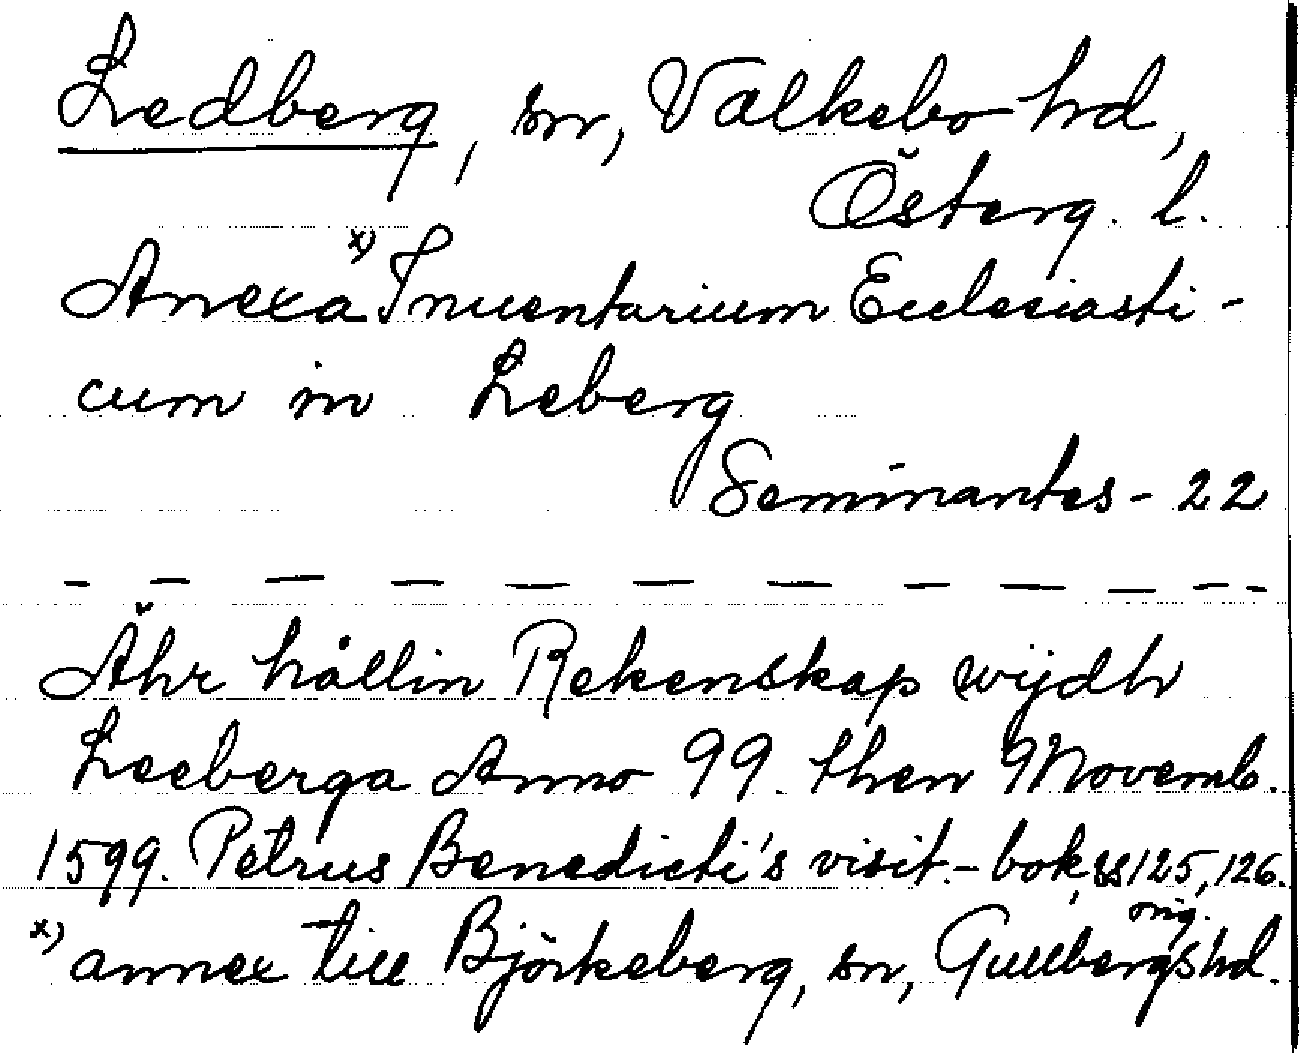 Ledberg, sn, Valkebo hd,
Österg. l.
Anexa x) Inuentarium Ecclesiasti-
cum in Leberg
Seminantes - 22
Ähr hållin Rekenskap wijdh
Leeberga Anno 99. then 9 Novemb.
1599. Petrus Benedicti's visit.-bok, ss 125, 126.
orig.
x) annex till Björkeberg, sn, Gullbergs hd.